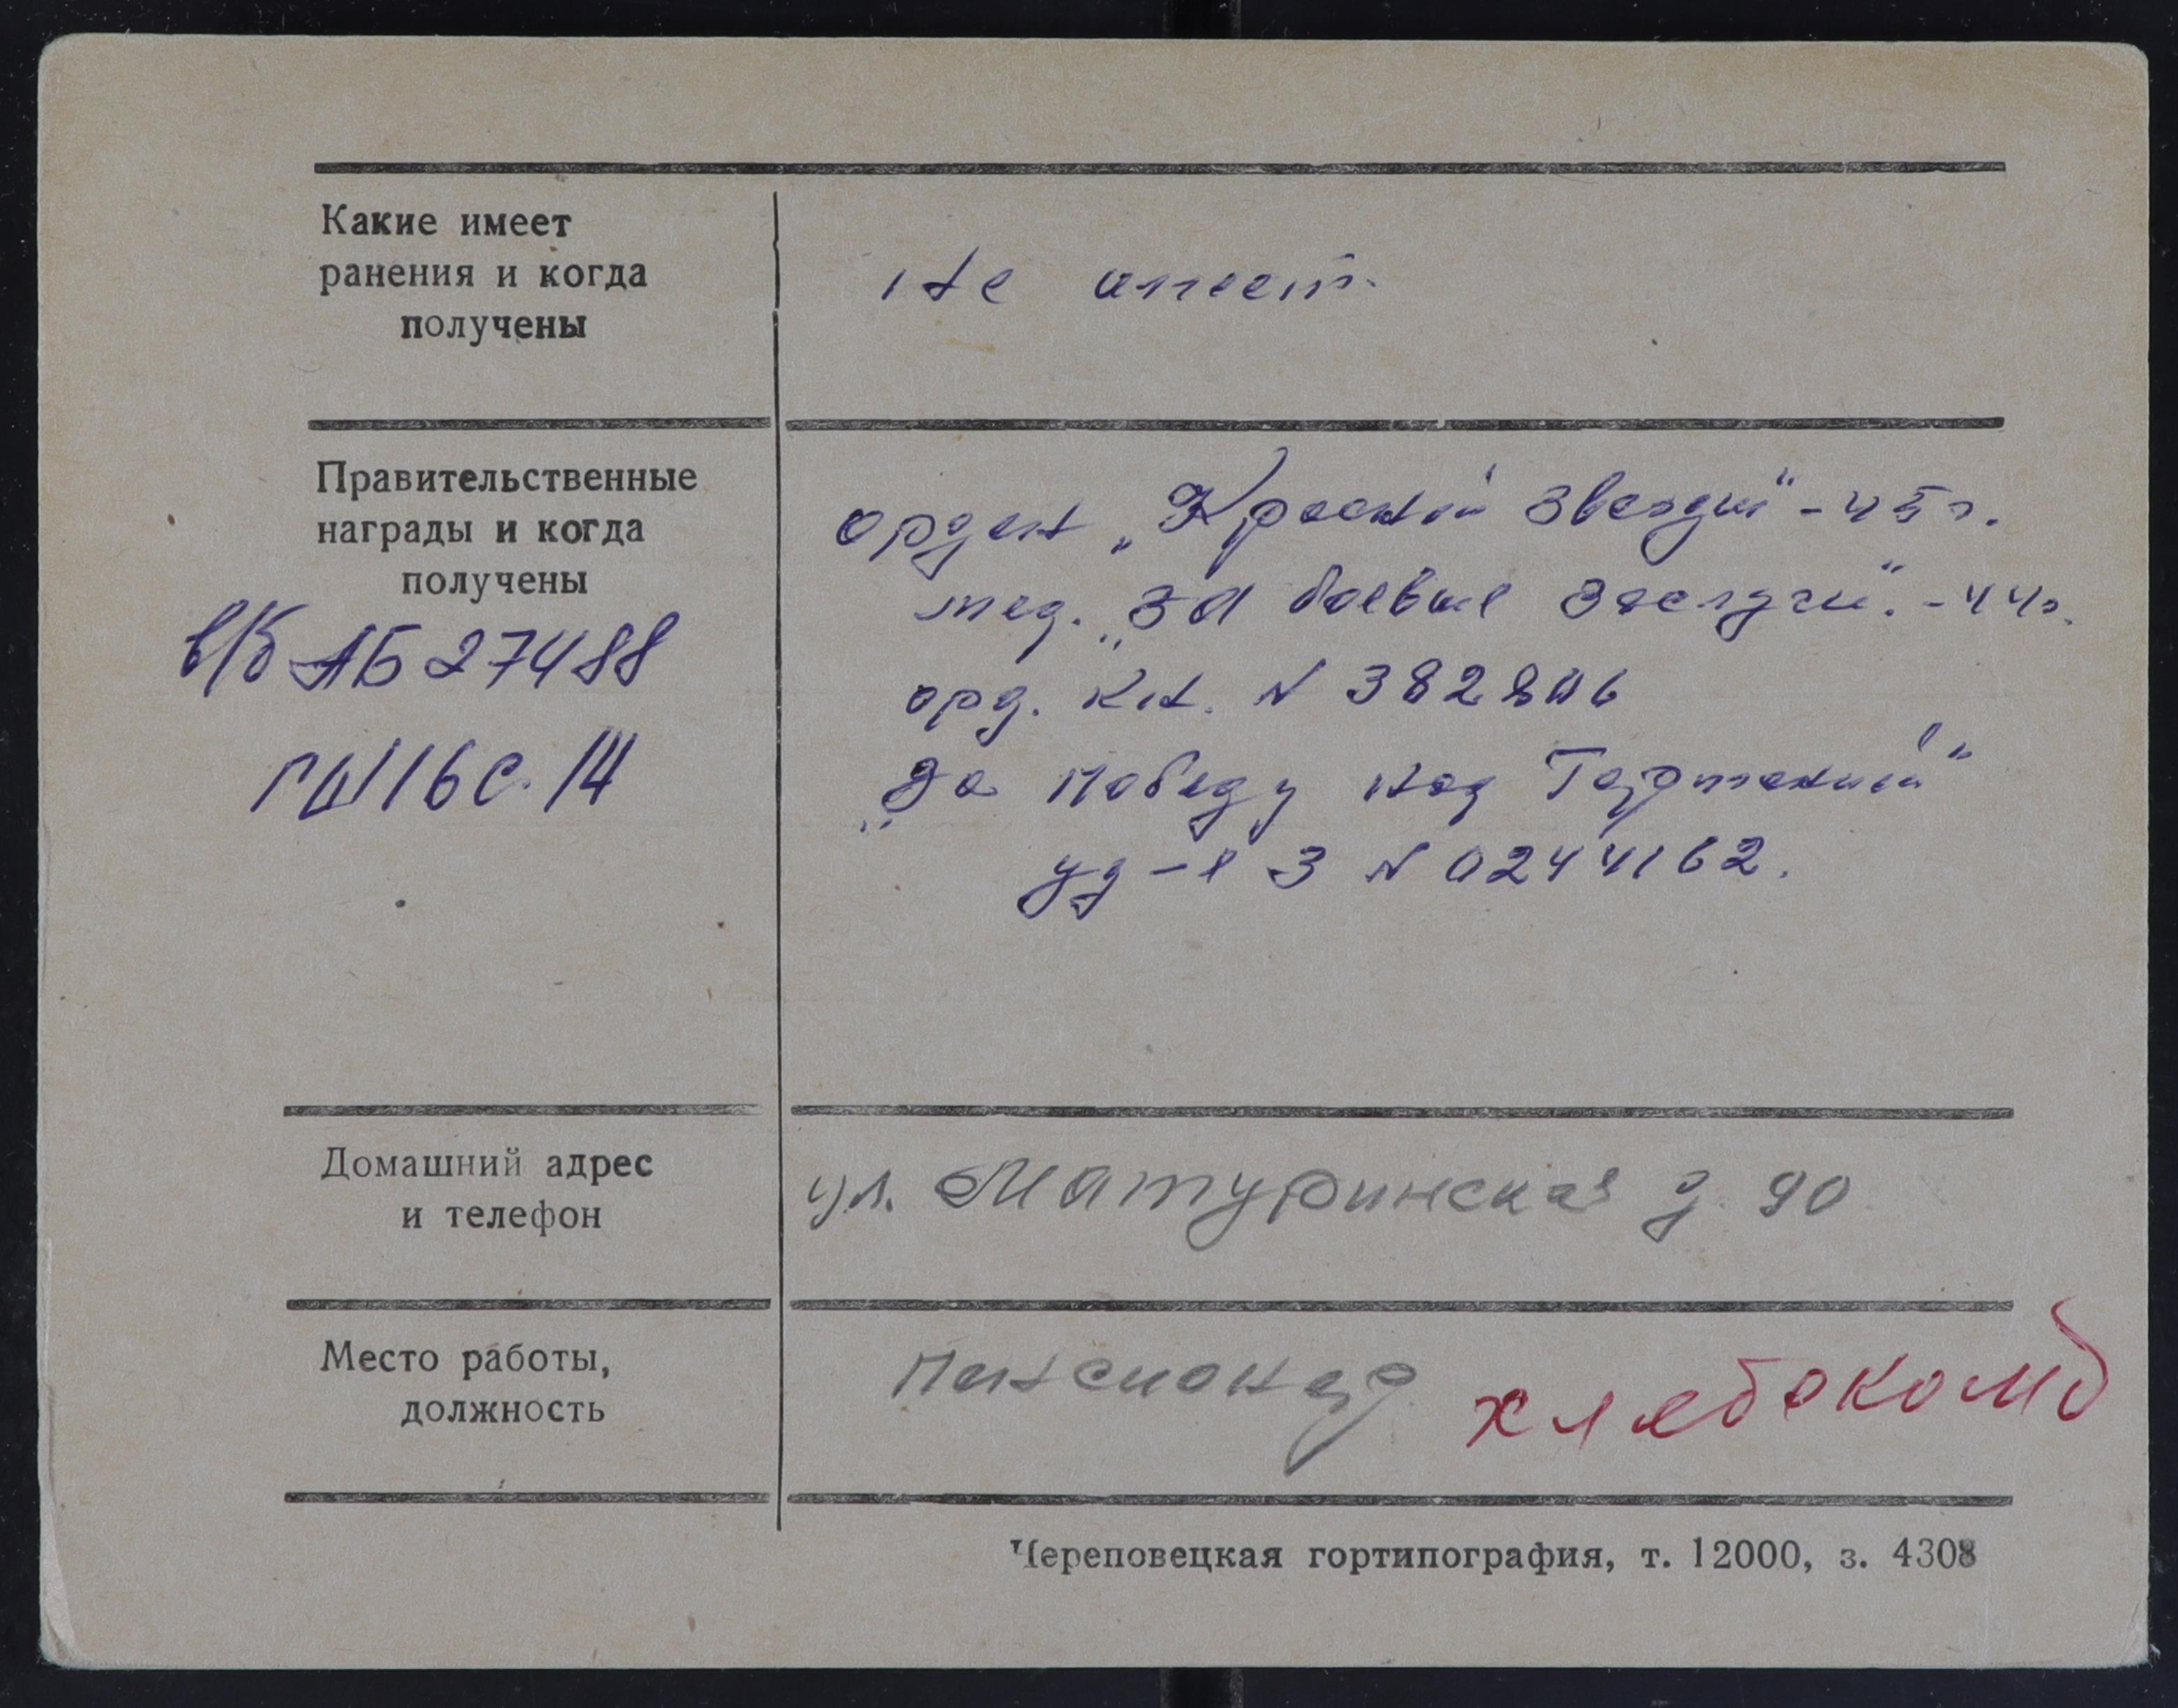 Какие имеет
ранения и когда
получены
не имеет.
Правительственные
награды и когда
получены
в/б АБ 27488
орден „Красной Звезды“ - 45 г.
мед. „За боевые заслуги“. - 44г.
орд. кн. N 382806
„За Победу над Германией“
уд-е З N 0244162.
Домашний адрес
и телефон
ул. Матуринская д. 90
Место работы,
должность
пенсионер хлебокомб
Череповецкая гортипография, т. 12000, з. 4308